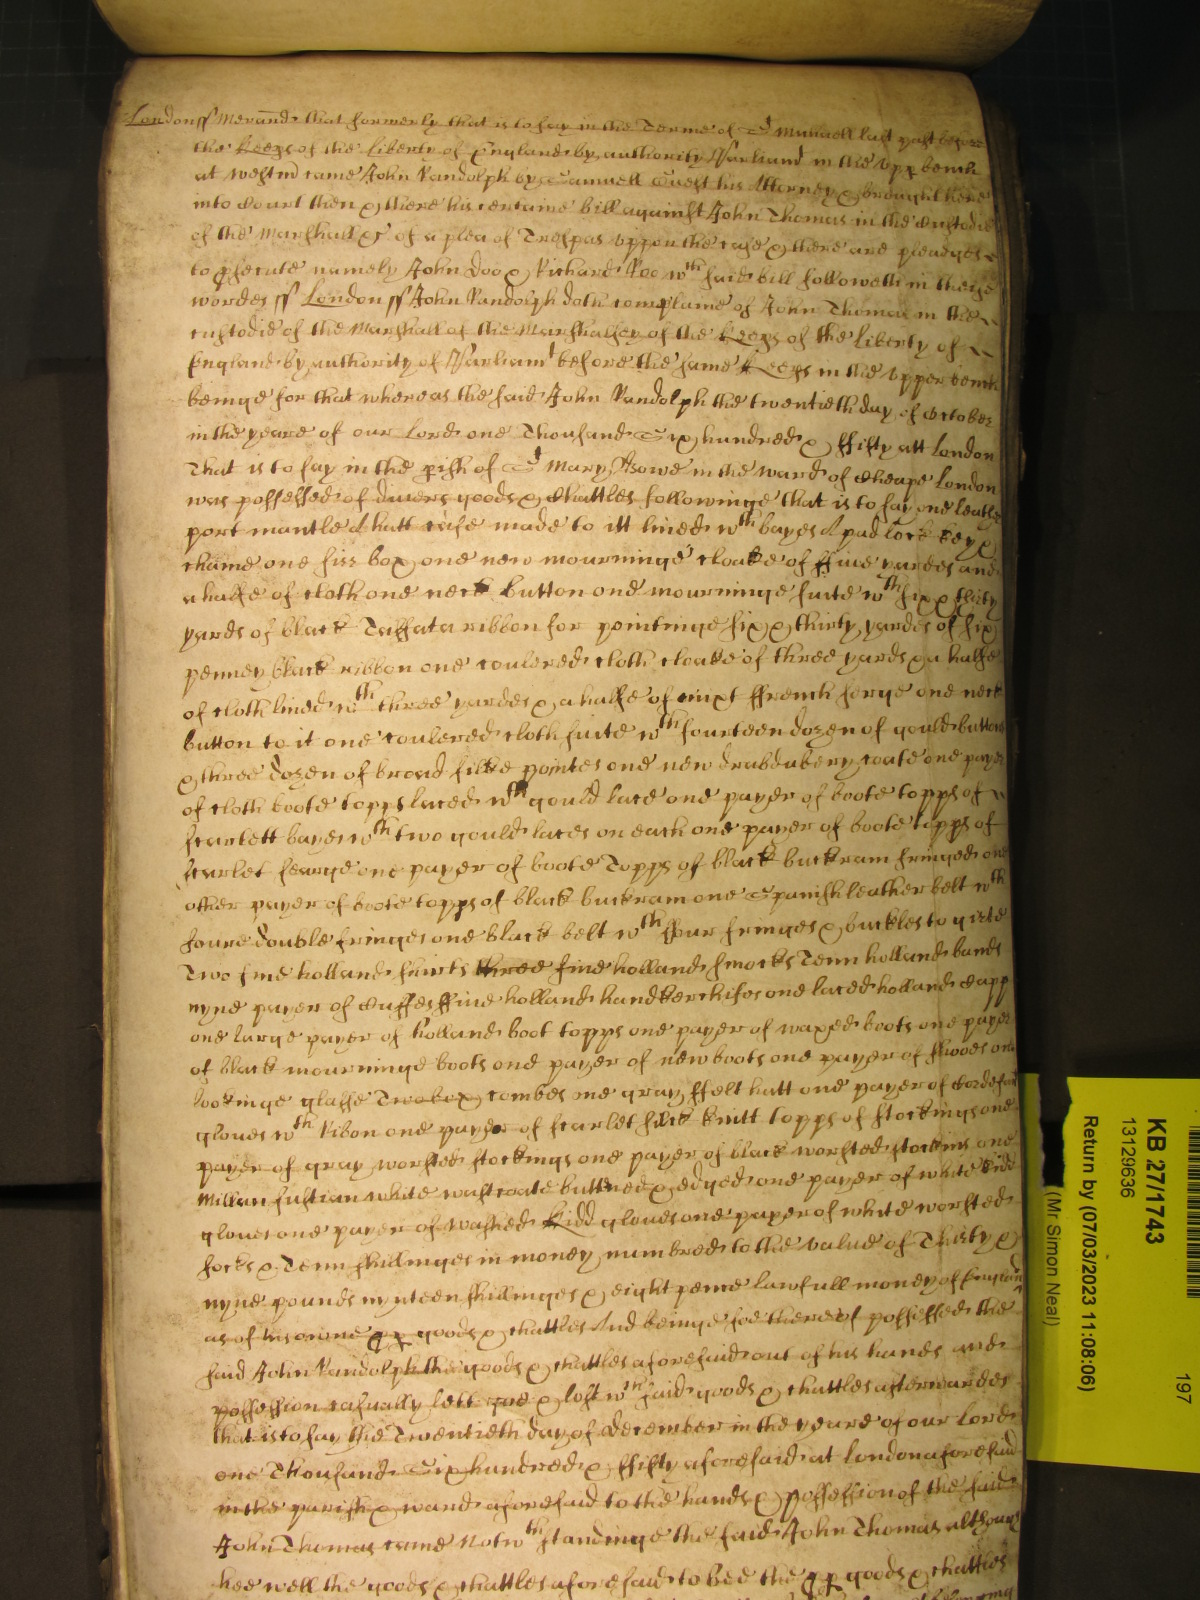 London ss Memorand that formerly that is to say in the Terme of St Michaell last past before
the Keeps of the Liberty of England by authority Parliamt in the upp bench
at westm came John Randolph by Samuell Guest his Attorney & brought here
into Court then & there his certaine bill against John Thomas in the Custodie
of the Marshall &c of a plea of Trespas uppon the case & there are pleadges
to psecute namely John Doo & Richard Roo wth said bill followeth in theise
wordes ss London ss John Randolph doth complaine of John Thomas in the
custodie of the Marshall of the Marshalsey of the Keeps of the Liberty of
England by authority of Parliamt before the same Keeps in the upper bench
beinge for that whereas the said John Randolph the twentieth day of October
in the yeare of our Lord one Thousand Six hundred & ffifty att London
That is to say in the pish of St Mary Bowe in the ward of Cheape London
was possessed of divers goods & Chattles followinge that is to say one leather
port mantle A hatt case made to itt lined wth bayes A padlock key &
chaine one box one new mourninge cloake of ffive yardes and
a halfe of cloth one neck button one mourninge suite wth six & thirty
yards of black Taffata ribbon for pointinge six & thirty yardes of six
penney black ribbon one coulered cloth cloake of three yards & a halfe
of cloth lined wth three yardes & a halfe of mixt ffrench serge one neck
button to it one coulered cloth suite wth fourteen dozen of gould buttons
& three dozen of broad silke pointes one new drabdubery coate one payer
of cloth boote topps laced wth gould lace one payer of boote topps of
scarlett bayes wth two gould laces on each one payer of boote topps of
scarlet searge one payer of boote Topps of black buckram fringed one
other payer of boote topps of black buckram one Spanish leather belt wth
foure double fringes one black belt wth ffour fringes & buckles to girte
Two fine holland shirts three fine holland smocks Tenn holland bands
nyne payer of Cuffes ffive holland handkerchifes one laced holland Capp
one large payer of holland boot topps one payer of waxed boots one payer
of black mourninge boots one payer of new boots one payer of shooes one
lookinge glasse Two box combes one gray ffelt hatt one payer of
gloves wth Ribon one payer of scarlet silke knitt topps of stockings one
payer of gray worsted stockings one payer of black worsted stockins one
Millan fustian white wastcoate buttned & edged one payer of white kidd
gloves one payer of washed Kidd gloves one payer of white worsted
socks & Tenn shillinges in money numbred to the value of Thirty &
nyne pounds nynteen shillinges & eight pence lawfull money of England
as of his owne pp goods & chattles And beinge soe thereof possessed the
said John Randolph the goods & chattles aforesaid out of his hands and
possession casually lett goe & lost wth said goods & chattles afterwardes
that is to say the Twentieth day of December in the yeare of our Lord
one Thousand Six hundred & ffifty aforesaid at London aforesaid
in the parish & ward aforesaid to the hands & possession of the said
John Thomas came Notwthstandinge the said John Thomas although
hee well the goods & chattles aforesaid to bee the pp goods & chattles
KB 27/1743
13129636
Return by (07/03/2023 11:08:06)
(Mr Simon Neal)
197